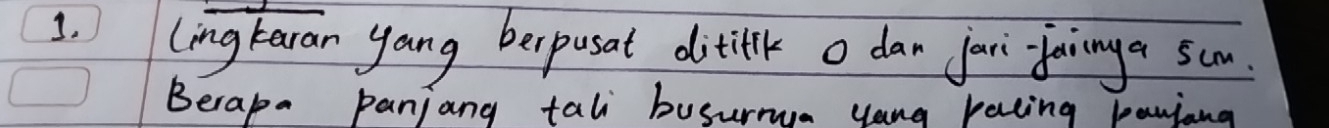 1. Lingkaran yang berpusat dititik O dan jari-jarinya 5 cm.
Berapa panjang tali busurnya yang paling panjang